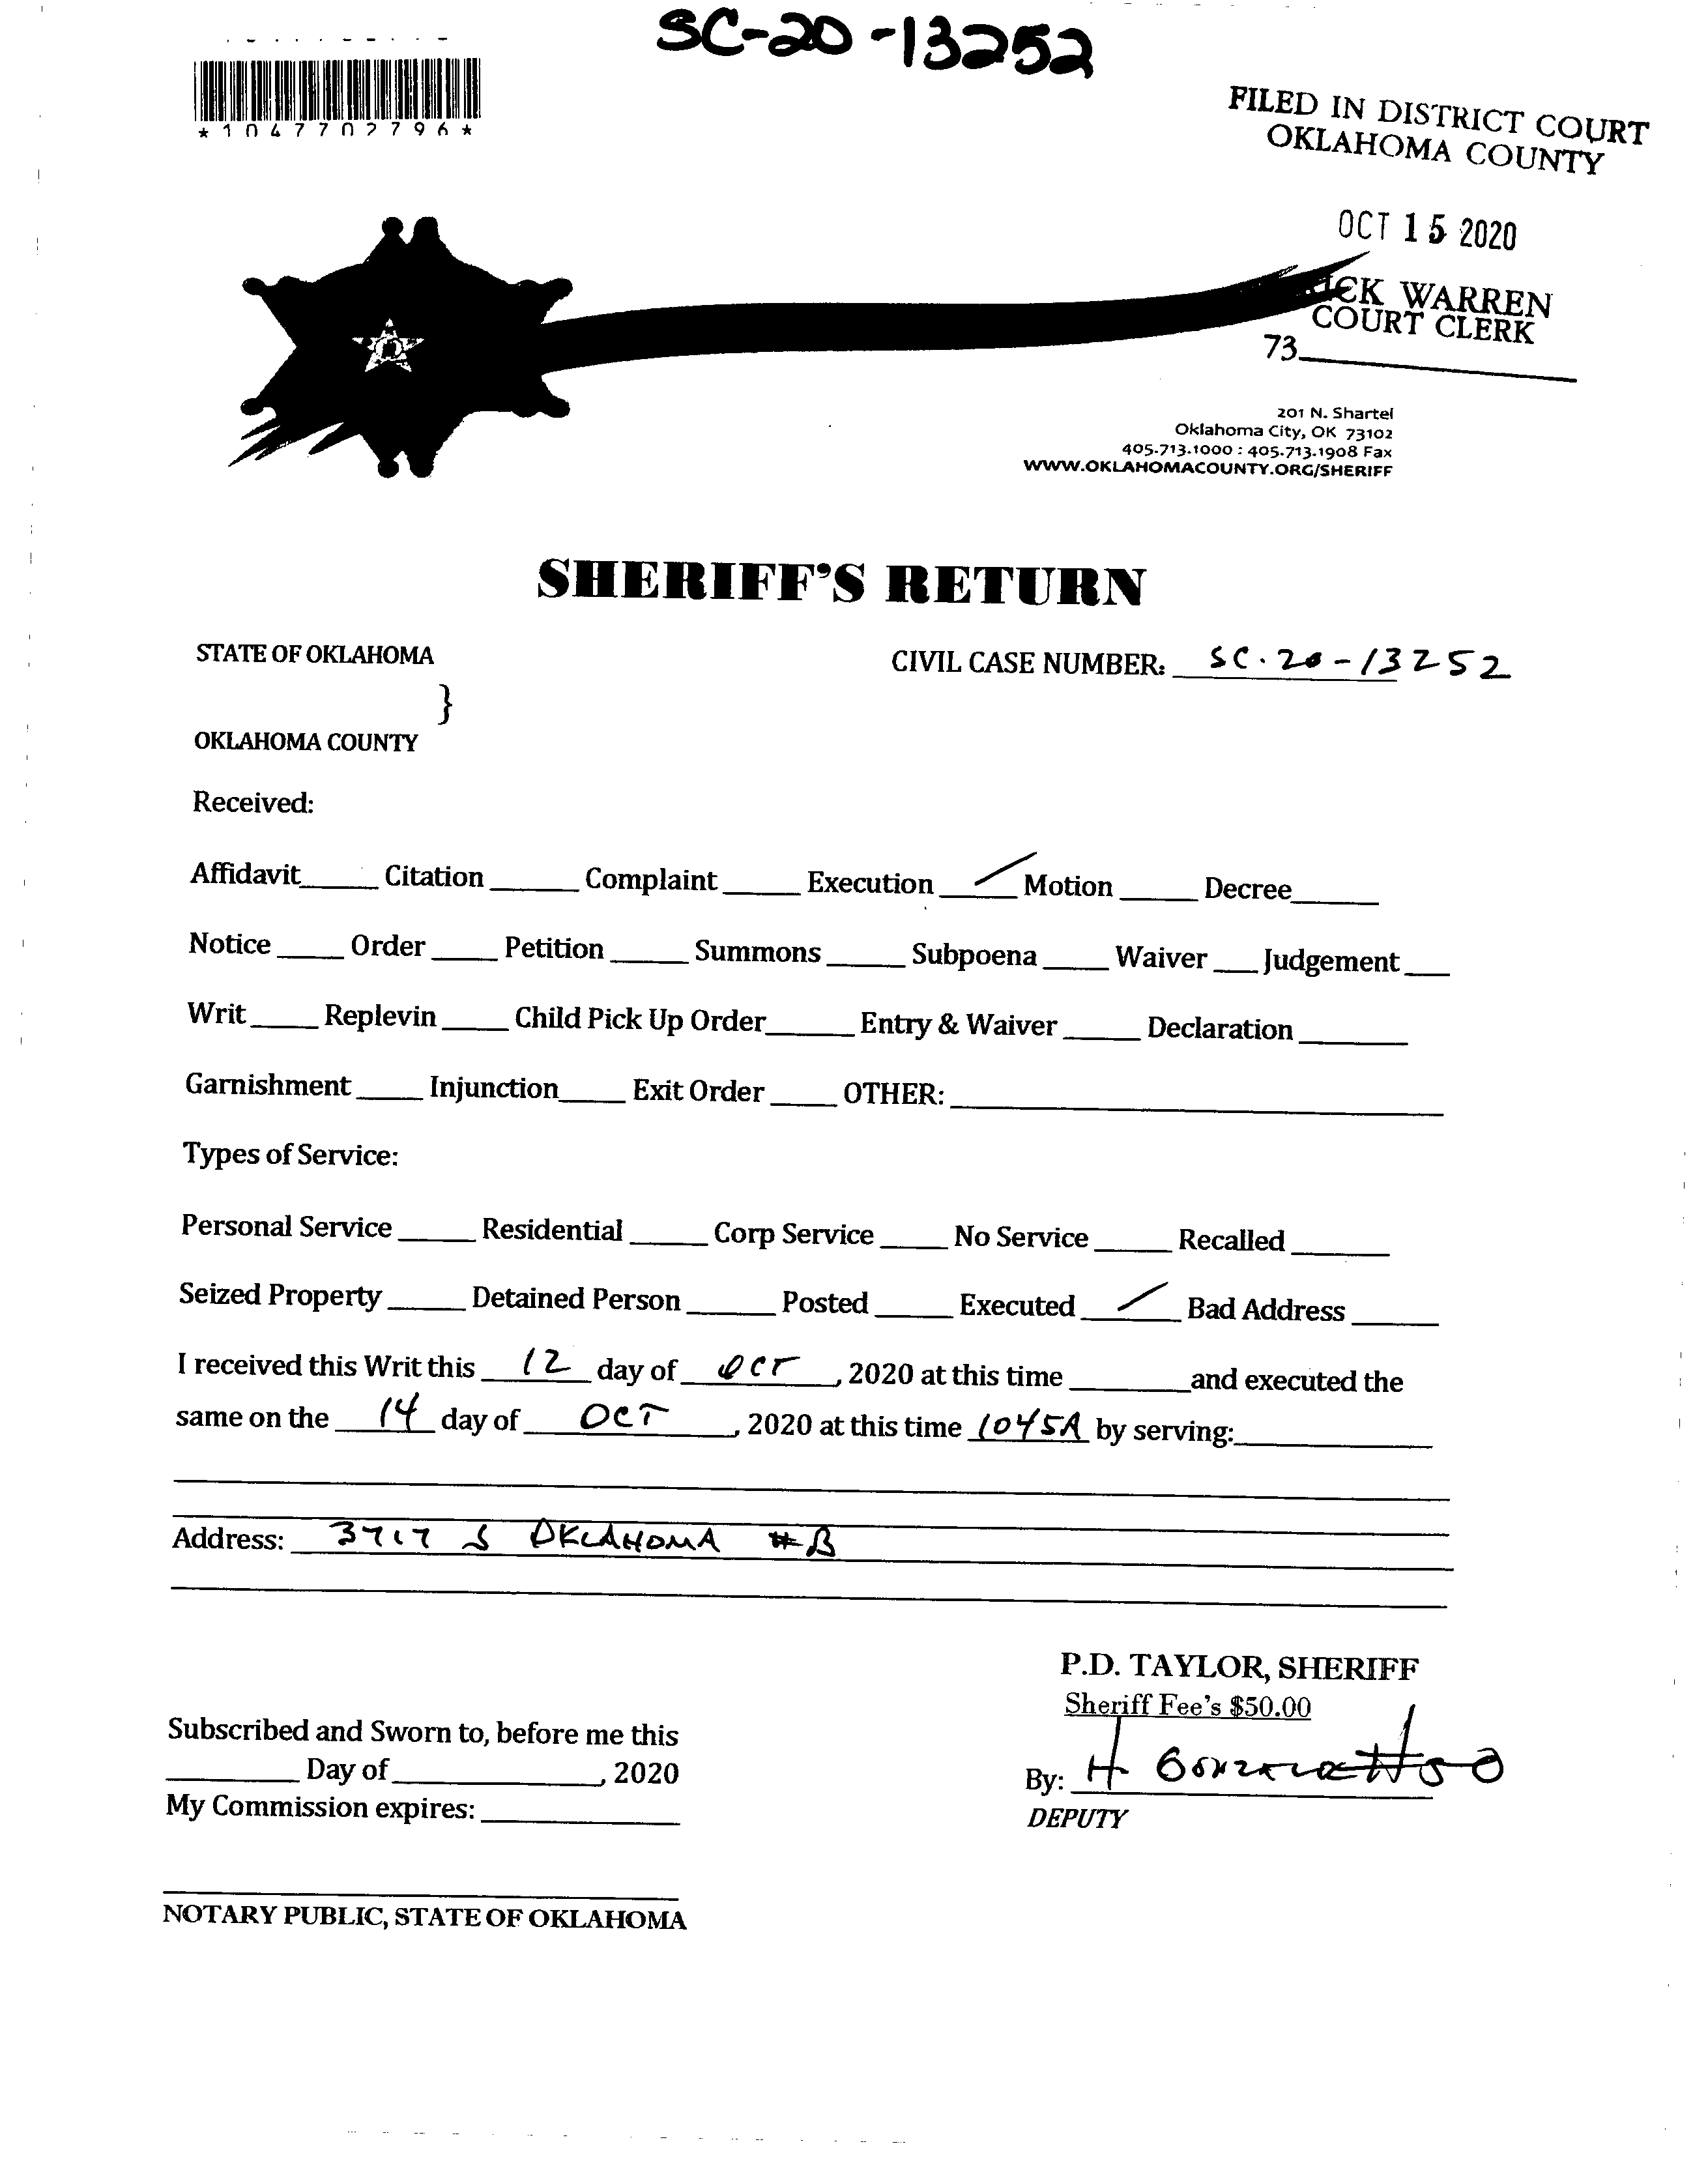 SC-20-13252
*1047702796*
FILED IN DISTRICT COURT
OKLAHOMA COUNTY
OCT 15 2020
ICK WARREN
COURT CLERK
73
201 N. Shartel
Oklahoma City, OK 73102
405.713.1000 : 405.713.1908 Fax
WWW.OKLAHOMACOUNTY.ORG/SHERIFF
SHERIFF'S RETURN
STATE OF OKLAHOMA
CIVIL CASE NUMBER: SC.20-13252
}
OKLAHOMA COUNTY
Received:
Affidavit______ Citation ______ Complaint ______ Execution __/__ Motion ______ Decree______
Notice _____ Order _____ Petition ______ Summons ______ Subpoena _____ Waiver ___ Judgement ___
Writ _____ Replevin _____ Child Pick Up Order______ Entry & Waiver ______ Declaration ________
Garnishment _____ Injunction_____ Exit Order _____ OTHER: ____________________
Types of Service:
Personal Service ______ Residential ______ Corp Service _____ No Service ______ Recalled _______
Seized Property ______ Detained Person ______ Posted ______ Executed __/__ Bad Address ______
I received this Writ this 12 day of OCT, 2020 at this time _________and executed the
same on the 14 day of OCT, 2020 at this time 1045A by serving:_______________
Address: 3717 S OKLAHOMA #B
P.D. TAYLOR, SHERIFF
Sheriff Fee's $50.00
Subscribed and Sworn to, before me this
__________ Day of________________, 2020
By: H
My Commission expires: _______________
DEPUTY
NOTARY PUBLIC, STATE OF OKLAHOMA